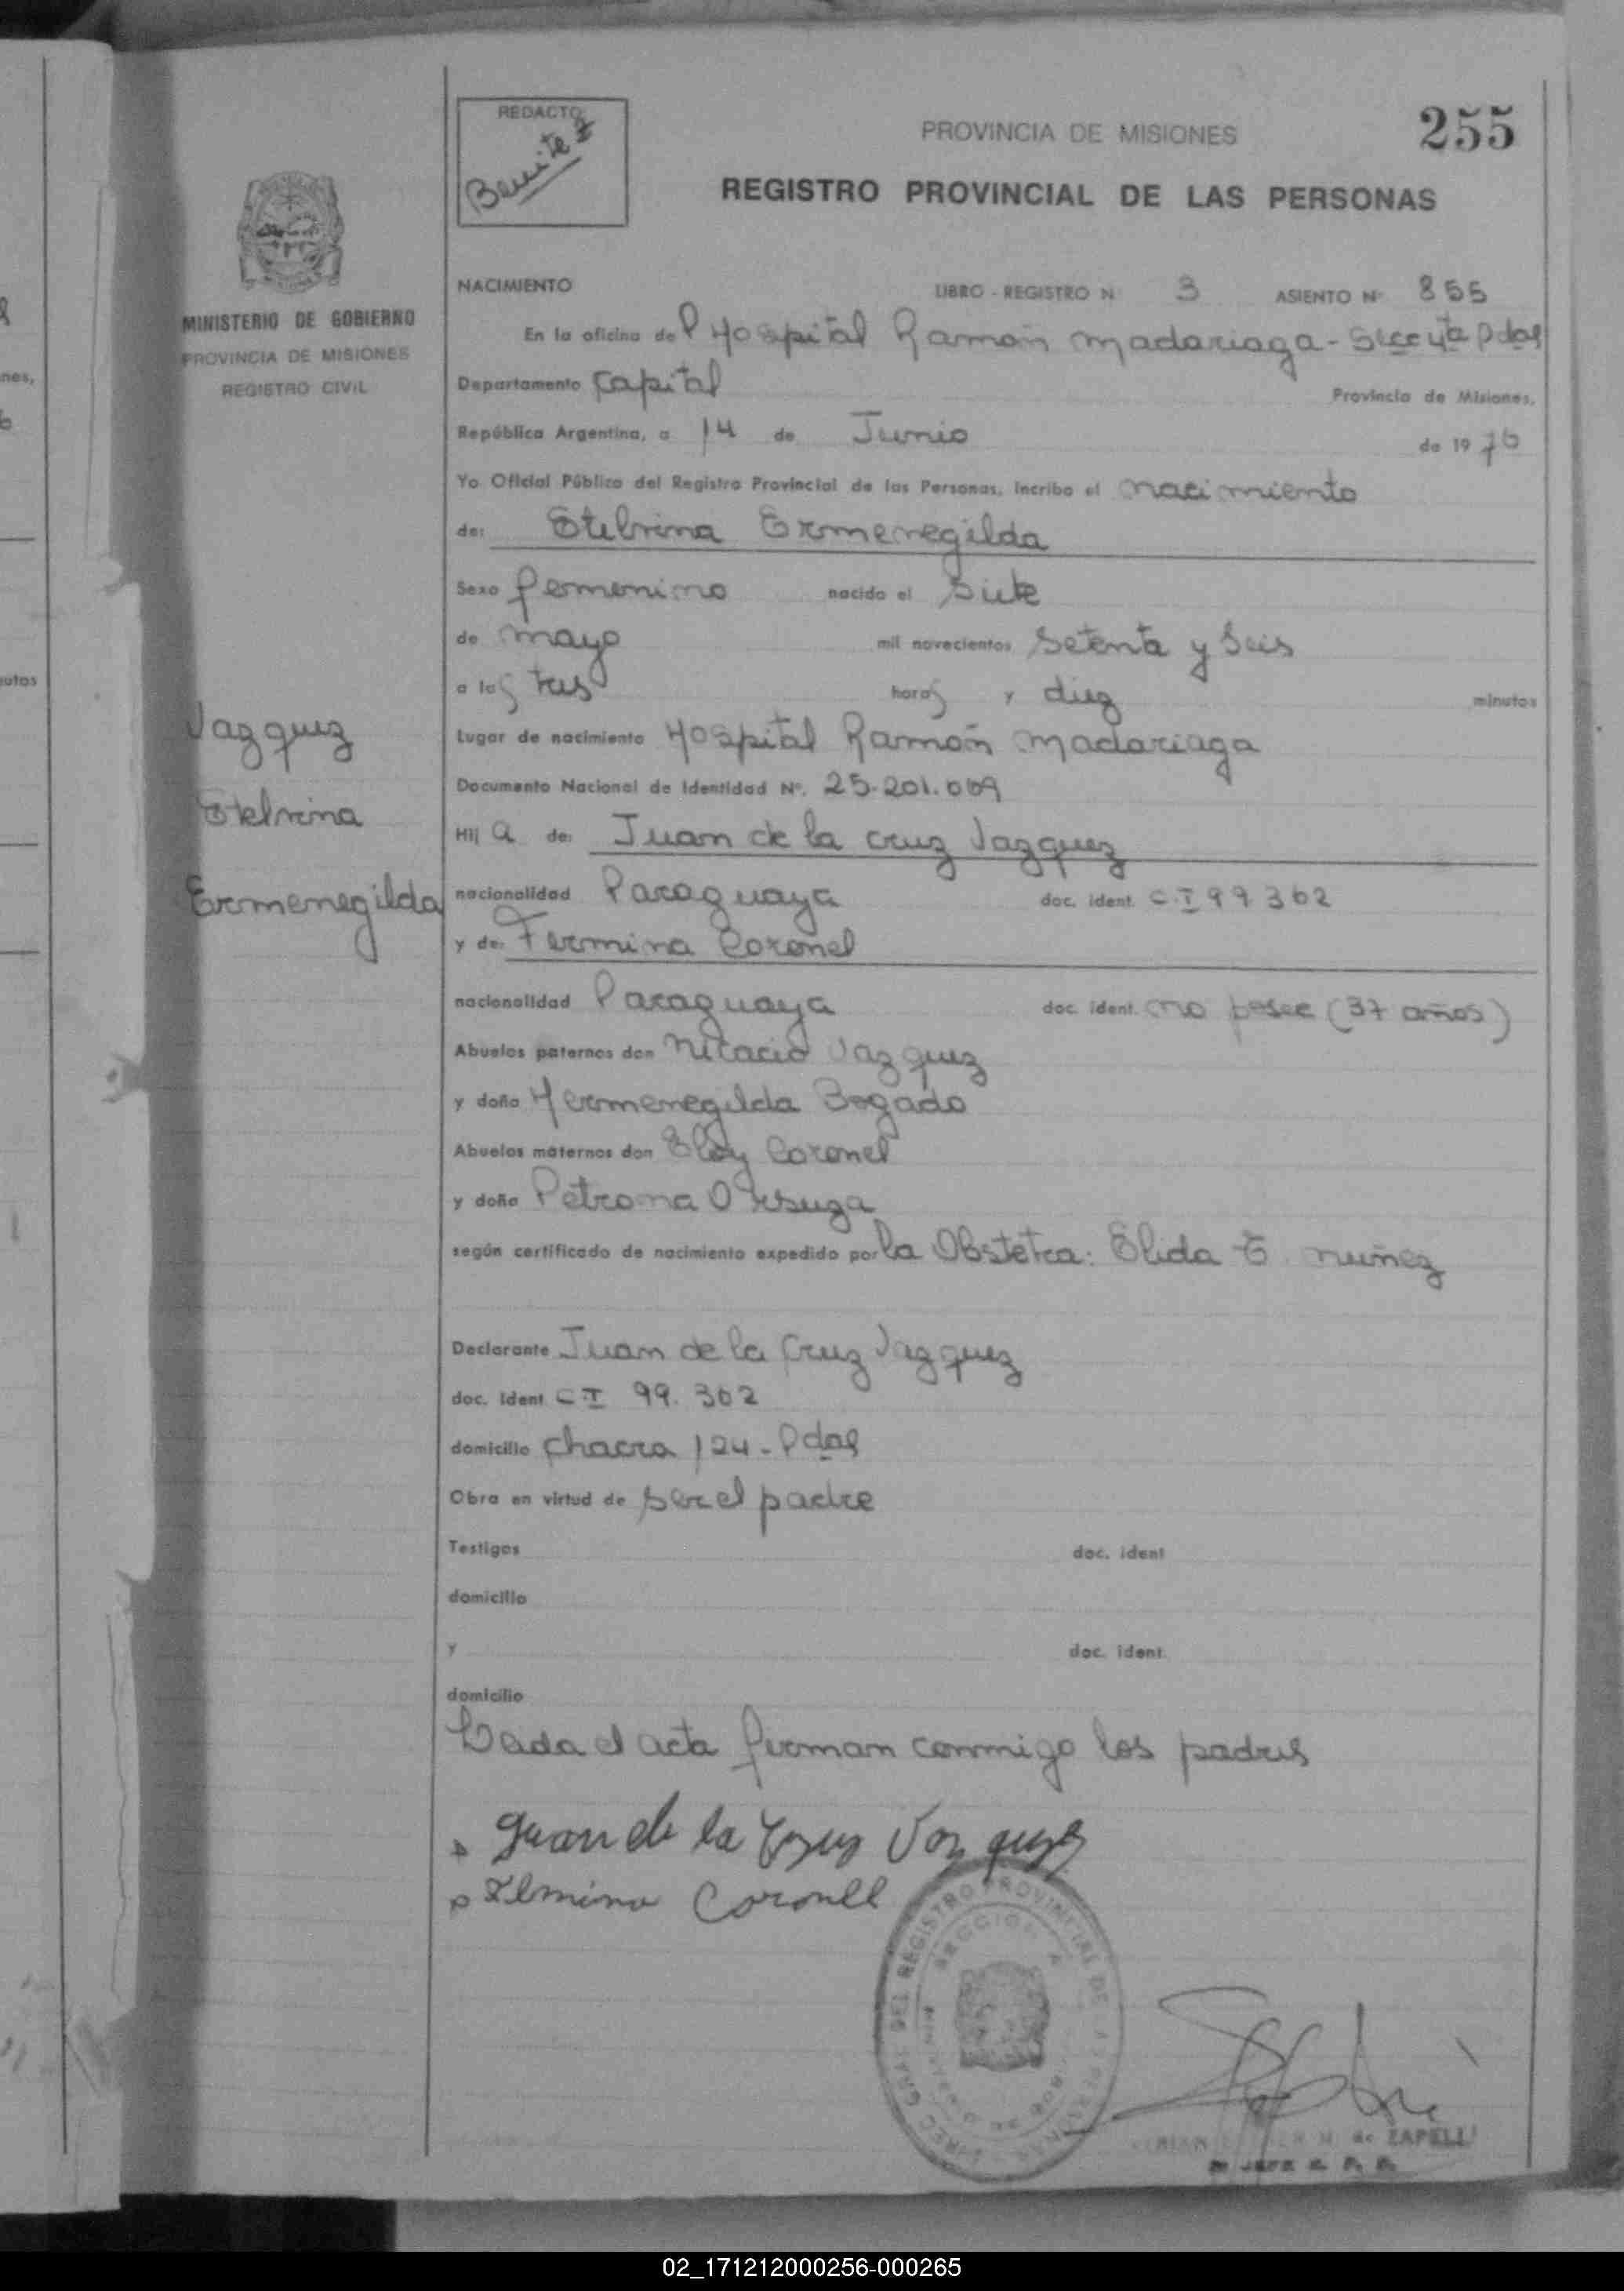 REDACTO
Benitez
PROVINCIA DE MISIONES
255
REGISTRO PROVINCIAL DE LAS PERSONAS
MINISTERIO DE GOBIERNO
PROVINCIA DE MISIONES
REGISTRO CIVIL
NACIMIENTO LIBRO - REGISTRO N 3 ASIENTO Nº 855
En la oficina del Hospital Ramón Madariaga - Secc 4ta Pdas
Departamento Capital Provincia de Misiones,
República Argentina, a 14 de Junio de 1976
Yo Oficial Público del Registro Provincial de las Personas, incribo el nacimiento
de: Etelvina Ermenegilda
Sexo femenino nacido el Siete
de mayo mil novecientos Setenta y Seis
a las tres horas y diez minutos
Lugar de nacimiento Hospital Ramón Madariaga
Documento Nacional de Identidad Nº. 25.201.009
Vazquez
Etelvina
Ermenegilda
Hij a de: Juan de la Cruz Vazquez
nacionalidad Paraguaya doc. ident. C.I 99 302
y de: Fermina Coronel
nacionalidad Paraguaya doc. ident. no posee (37 años)
Abuelos paternos don Nicacio Vazquez
y doña Hermenegilda Bogado
Abuelos maternos don Eloy Coronel
y doña Petrona
según certificado de nacimiento expedido por la Obstetra: Elida E. Nuñez
Declarante Juan de la Cruz Vazquez
doc. ident C.I 99.302
domicilio Chacra 124 - Pdas
Obra en virtud de ser el padre
Testigos doc. ident
domicilio
y doc. ident.
domicilio
Leida el acta firman conmigo los padres
Juan de la Cruz Vazquez
Coronel
DEL REGISTRO PROVINCIAL DE
SECCION
de ZAPELLI
02_171212000256-000265